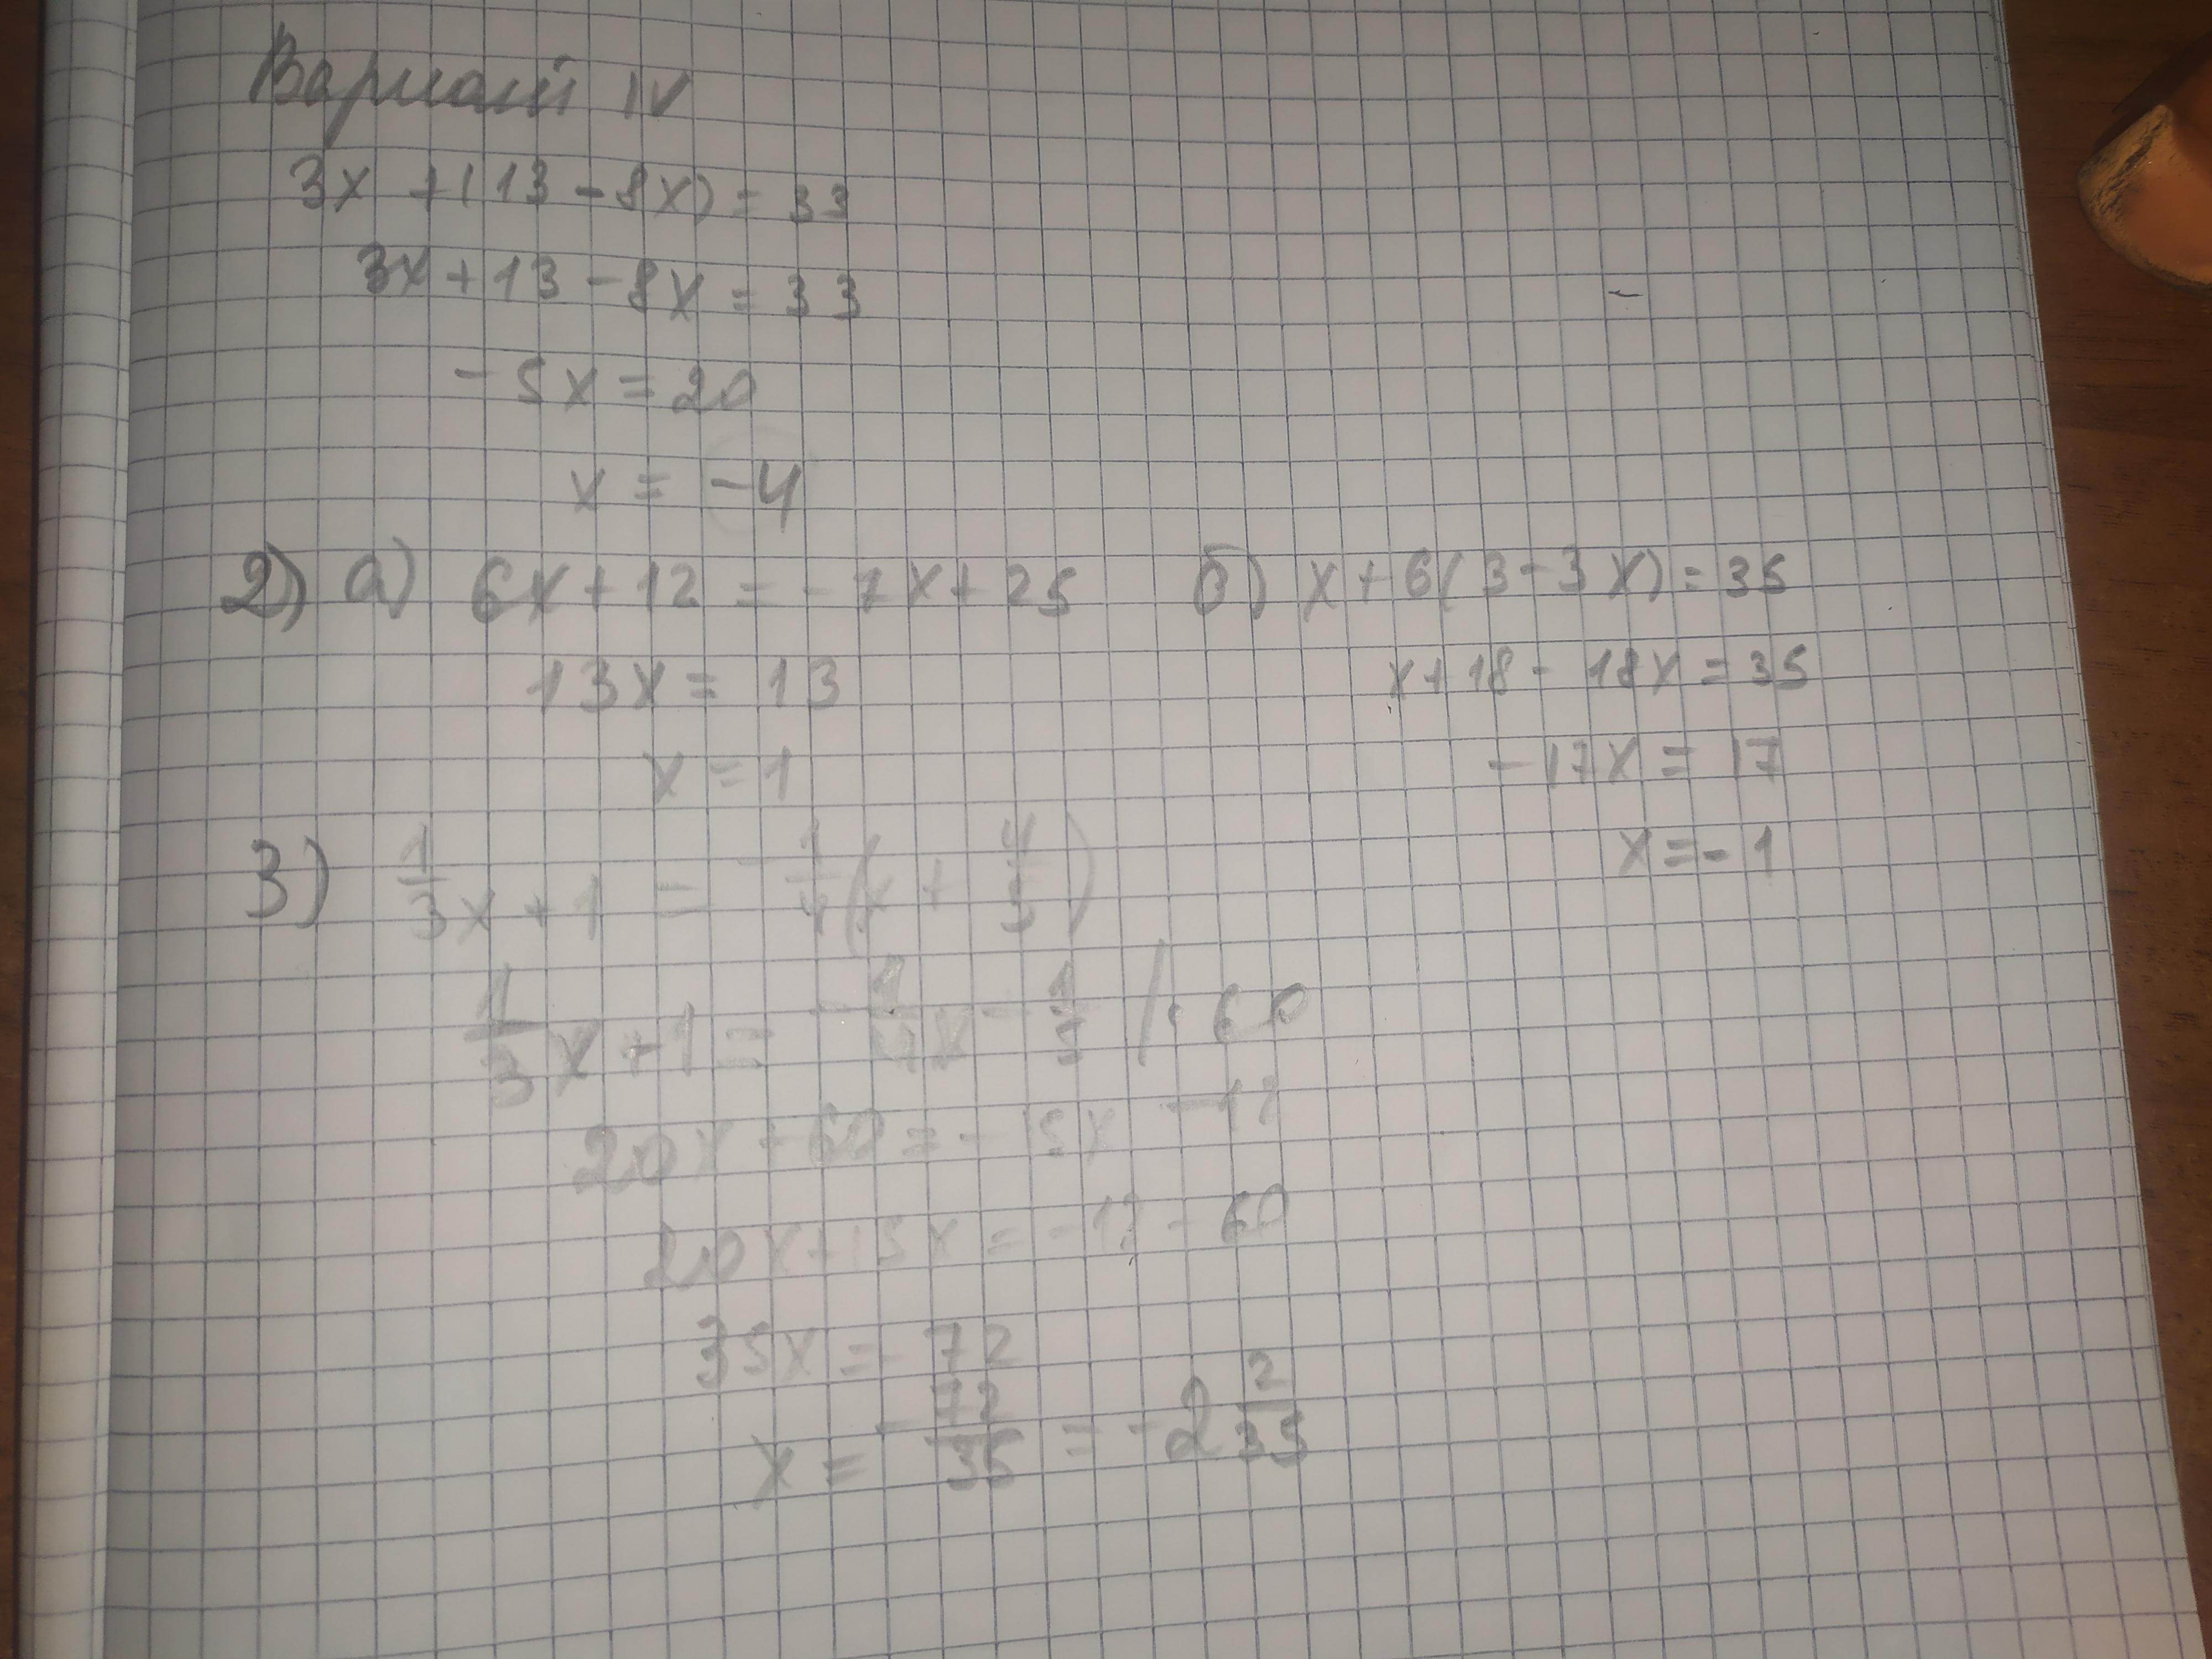 Вариант IV
3x + (13 - 8x) = 33
3x + 13 - 8x = 33
- 5x = 20
x = -4
2) а) 6x + 12 = - 7x + 25
13x = 13
x = 1
б) x + 6(3 - 3x) = 35
x + 18 - 18x = 35
- 17x = 17
x = - 1
3) 1/3 x + 1 = - 1/4 (x + 4/5)
1/3 x + 1 = - 1/4 x - 1/5 / · 60
20x + 60 = - 15x - 12
20x + 15x = - 12 - 60
35x = - 72
x = - 72/35 = - 2 2/35